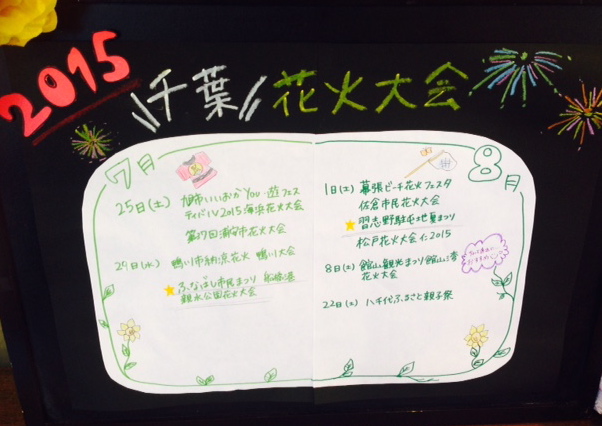 2015
千葉 花火大会
7月
25日(土) 旭市いいおかYou・遊フェス
ティバル2015海浜花火大会
第37回浦安市花火大会
29日(水) 鴨川市納涼花火 鴨川大会
ふなばし市民まつり 船橋港
親水公園花火大会
8月
1日(土) 幕張ビーチ花火フェスタ
佐倉市民花火大会
習志野駐屯地夏まつり
松戸花火大会 in 2015
8日(土) 館山観光まつり館山湾
花火大会
22日(土) 八千代ふるさと親子祭